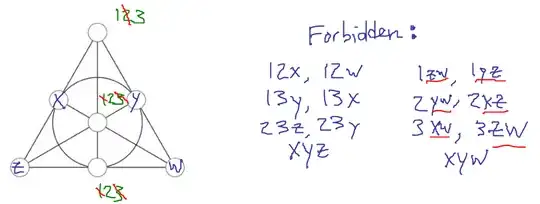 123
Forbidden:
12x, 12w
1zw, 1yz
x 123 y
13y, 13x
2yw, 2xz
23z, 23y
3xw, 3zw
xyz
xyw
z w
123